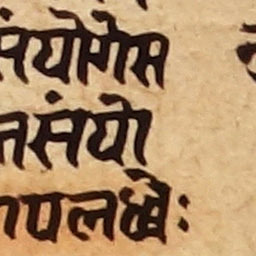 संयोगेस
संयो
पलब्धेः